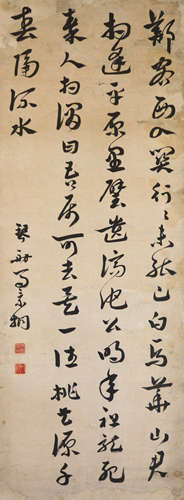 鄭客西入關行〻未能已白馬華山君
相逢平原里璧遺滈池公明年祖龍死
秦人相謂曰吾屬可去矣一往桃花源千
春隔流水
景桐